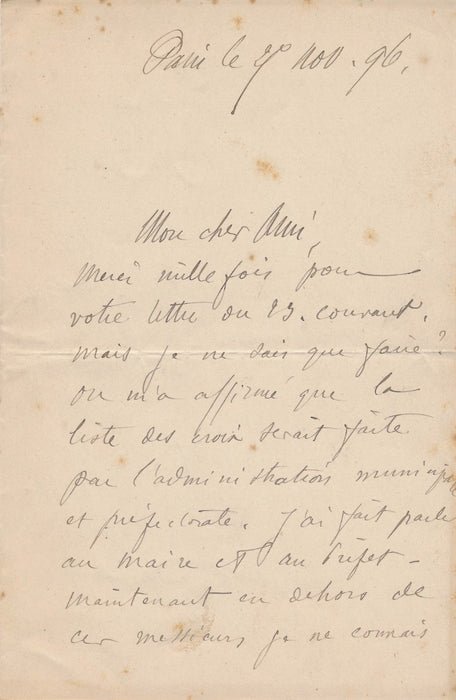 Paris le nov. 96.
Mon cher Ami,
Merci mille fois pour
votre lettre du 23. courant.
mais je ne sais que faire?
on m'a affirmé que la
liste des croix serait faite
par l'administration municipale
et préfectorale. J'ai fait parler
au maire et au Préfet -
maintenant en dehors de
ces messieurs je ne connais